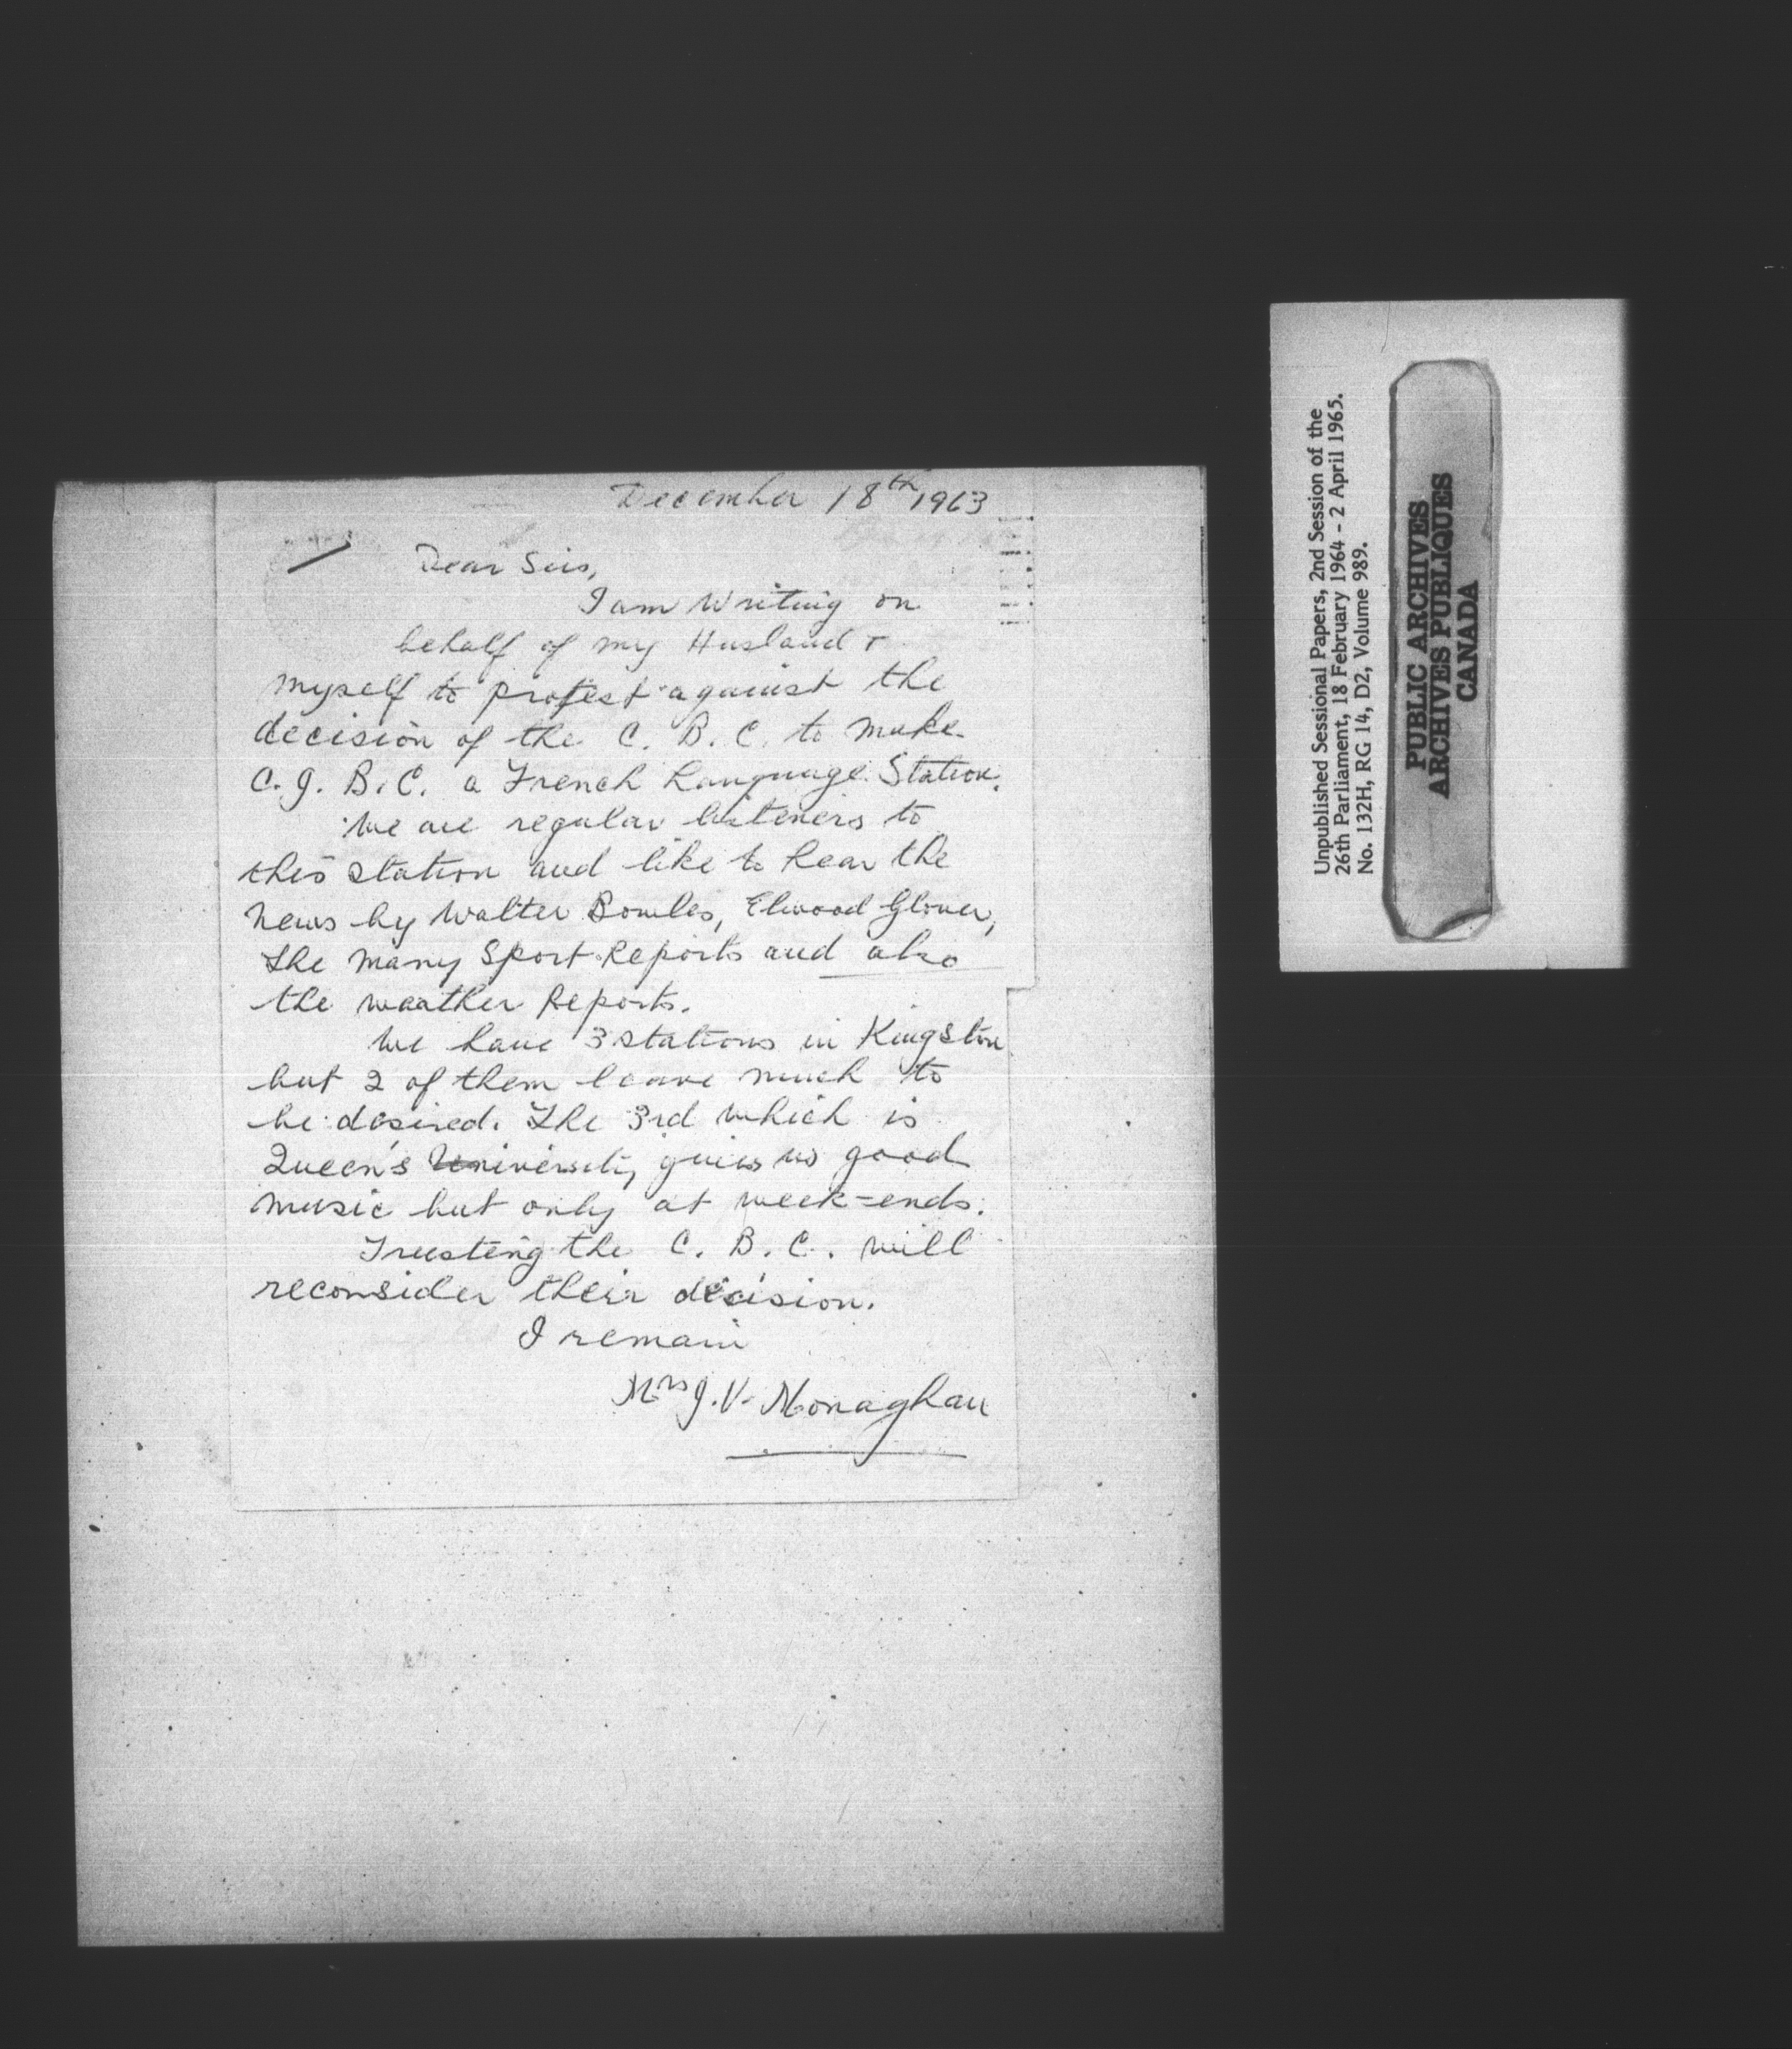 December 18th 1963
Dear Sirs,
I am writing on
behalf of my Husband &
myself to protest against the
decision of the C. B. C. to make
C. J. B. C. a French Language Station.
We are regular listeners to
this station and like to hear the
news by Walter Bowles, Elwood Glover,
the many Sport Reports and also
the weather Reports.
We have 3 stations in Kingston
but 2 of them leave much to
be desired. The 3rd which is
Queen's University gives us good
music but only at week-ends.
Trusting the C. B. C. will
reconsider their decision.
I remain
Mrs J. V. Monaghan
Unpublished Sessional Papers, 2nd Session of the
26th Parliament, 18 February 1964 - 2 April 1965.
No. 132H, RG 14, D2, Volume 989.
PUBLIC ARCHIVES
ARCHIVES PUBLIQUES
CANADA